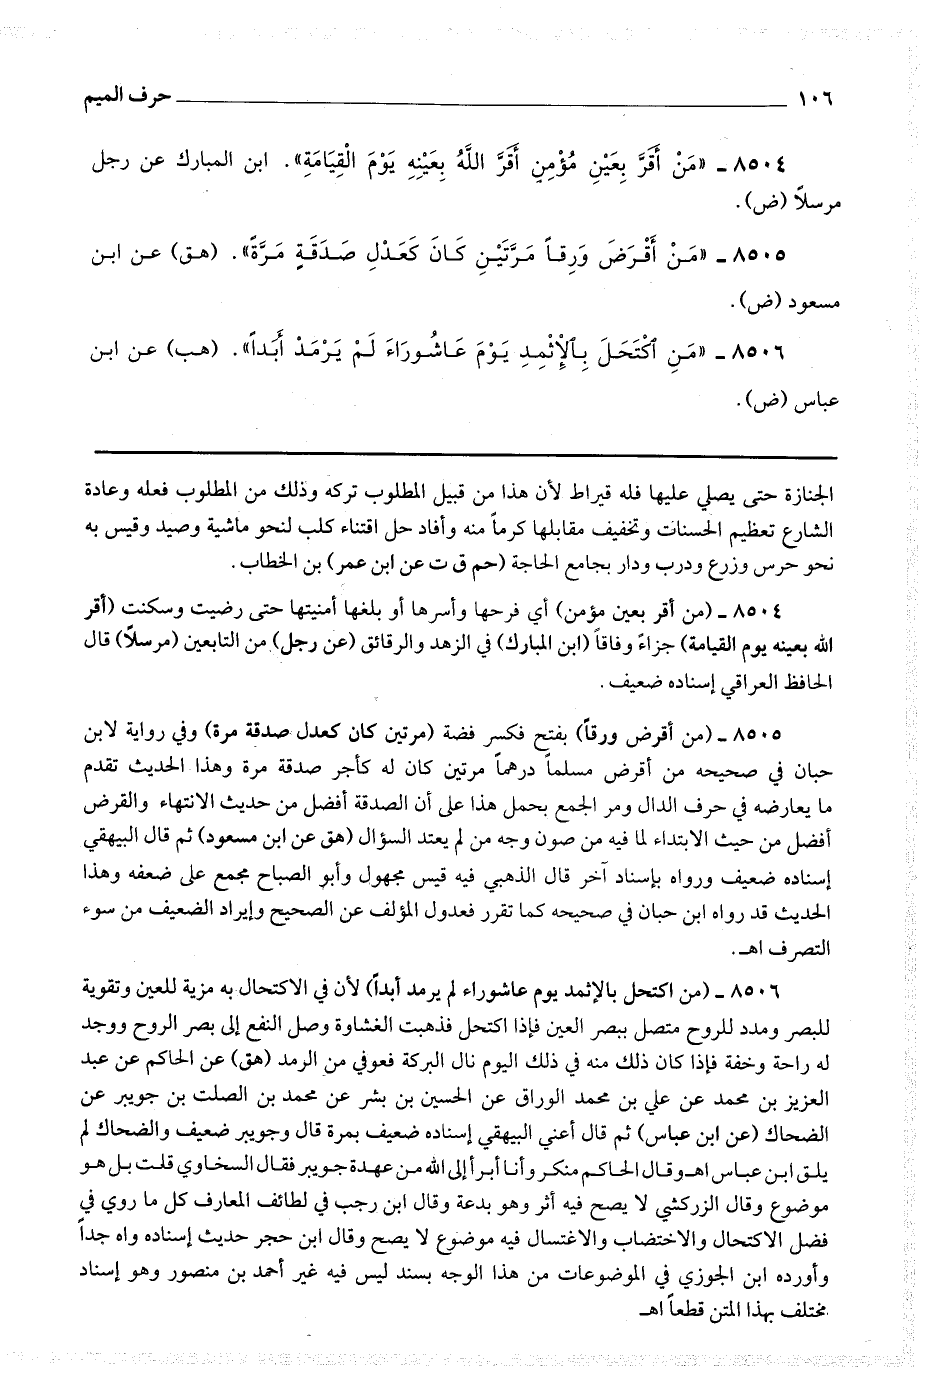 ١٠٦ حرف الميم
٨٥٠٤ ـ «مَنْ أَقَرَّ بِعَيْنِ مُؤْمِنٍ أَقَرَّ اللَّهُ بِعَيْنِهِ يَوْمَ الْقِيَامَةِ». ابن المبارك عن رجل
مرسلاً (ض).
٨٥٠٥ ـ «مَنْ أَقْرَضَ وَرِقاً مَرَّتَيْنِ كَانَ كَعَدْلِ صَدَقَةٍ مَرَّةً». (هق) عن ابن
مسعود (ض).
٨٥٠٦ ـ «مَنِ ٱكْتَحَلَ بِٱلإِثْمِدِ يَوْمَ عَاشُورَاءَ لَمْ يَرْمَدْ أَبَداً». (هب) عن ابن
عباس (ض).
الجنازة حتى يصلي عليها فله قيراط لأن هذا من قبيل المطلوب تركه وذلك من المطلوب فعله وعادة
الشارع تعظيم الحسنات وتخفيف مقابلها كرماً منه وأفاد حل اقتناء كلب لنحو ماشية وصيد وقيس به
نحو حرس وزرع ودرب ودار بجامع الحاجة (حم ق ت عن ابن عمر) بن الخطاب.
٨٥٠٤ ـ (من أقر بعين مؤمن) أي فرحها وأسرها أو بلغها أمنيتها حتى رضيت وسكنت (أقر
الله بعينه يوم القيامة) جزاءً وفاقاً (ابن المبارك) في الزهد والرقائق (عن رجل) من التابعين (مرسلاً) قال
الحافظ العراقي إسناده ضعيف.
٨٥٠٥ ـ (من أقرض ورقاً) بفتح فكسر فضة (مرتين كان كعدل صدقة مرة) وفي رواية لابن
حبان في صحيحه من أقرض مسلماً درهماً مرتين كان له كأجر صدقة مرة وهذا الحديث تقدم
ما يعارضه في حرف الدال ومر الجمع بحمل هذا على أن الصدقة أفضل من حديث الانتهاء والقرض
أفضل من حيث الابتداء لما فيه من صون وجه من لم يعتد السؤال (هق عن ابن مسعود) ثم قال البيهقي
إسناده ضعيف ورواه بإسناد آخر قال الذهبي فيه قيس مجهول وأبو الصباح مجمع على ضعفه وهذا
الحديث قد رواه ابن حبان في صحيحه كما تقرر فعدول المؤلف عن الصحيح وإيراد الضعيف من سوء
التصرف اهـ.
٨٥٠٦ ـ (من اكتحل بالإثمد يوم عاشوراء لم يرمد أبداً) لأن في الاكتحال به مزية للعين وتقوية
للبصر ومدد للروح متصل ببصر العين فإذا اكتحل فذهبت الغشاوة وصل النفع إلى بصر الروح ووجد
له راحة وخفة فإذا كان ذلك منه في ذلك اليوم نال البركة فعوفي من الرمد (هق) عن الحاكم عن عبد
العزيز بن محمد عن علي بن محمد الوراق عن الحسين بن بشر عن محمد بن الصلت بن جويبر عن
الضحاك (عن ابن عباس) ثم قال أعني البيهقي إسناده ضعيف بمرة قال وجويبر ضعيف والضحاك لم
يلق ابن عباس اهـ وقال الحاكم منكر وأنا أبرأ إلى الله من عهدة جويبر فقال السخاوي قلت بل هو
موضوع وقال الزركشي لا يصح فيه أثر وهو بدعة وقال ابن رجب في لطائف المعارف كل ما روي في
فضل الاكتحال والاختضاب والاغتسال فيه موضوع لا يصح وقال ابن حجر حديث إسناده واه جداً
وأورده ابن الجوزي في الموضوعات من هذا الوجه بسند ليس فيه غير أحمد بن منصور وهو إسناد
مختلف بهذا المتن قطعاً اهـ